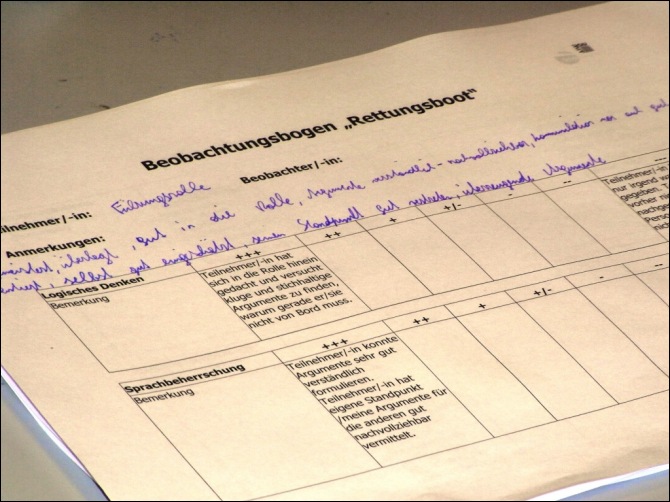 Beobachtungsbogen „Rettungsboot"
ilnehmer/-in: Führungsrolle Beobachter/-in:
Anmerkungen: , gut in die Rolle, Argumente verständlich - nachvollziehbar, Kommunikation
, selbst gut eingeschätzt, seinen Standpunkt gut vertreten, überzeugende Argumente
Logisches Denken +++ ++ + +/- - --
Bemerkung
Teilnehmer/-in hat
sich in die Rolle hinein
gedacht und versucht
kluge und stichhaltige
Argumente zu finden,
warum gerade er/sie
nicht von Bord muss.
nur irgend
gegeben
vorher
Sprachbeherrschung +++ ++ + +/- - --
Bemerkung
Teilnehmer/-in konnte
Argumente sehr gut
verständlich
formulieren.
Teilnehmer/-in hat
eigene Standpunkt
/meine Argumente für
die anderen gut
nachvollziehbar
vermittelt.